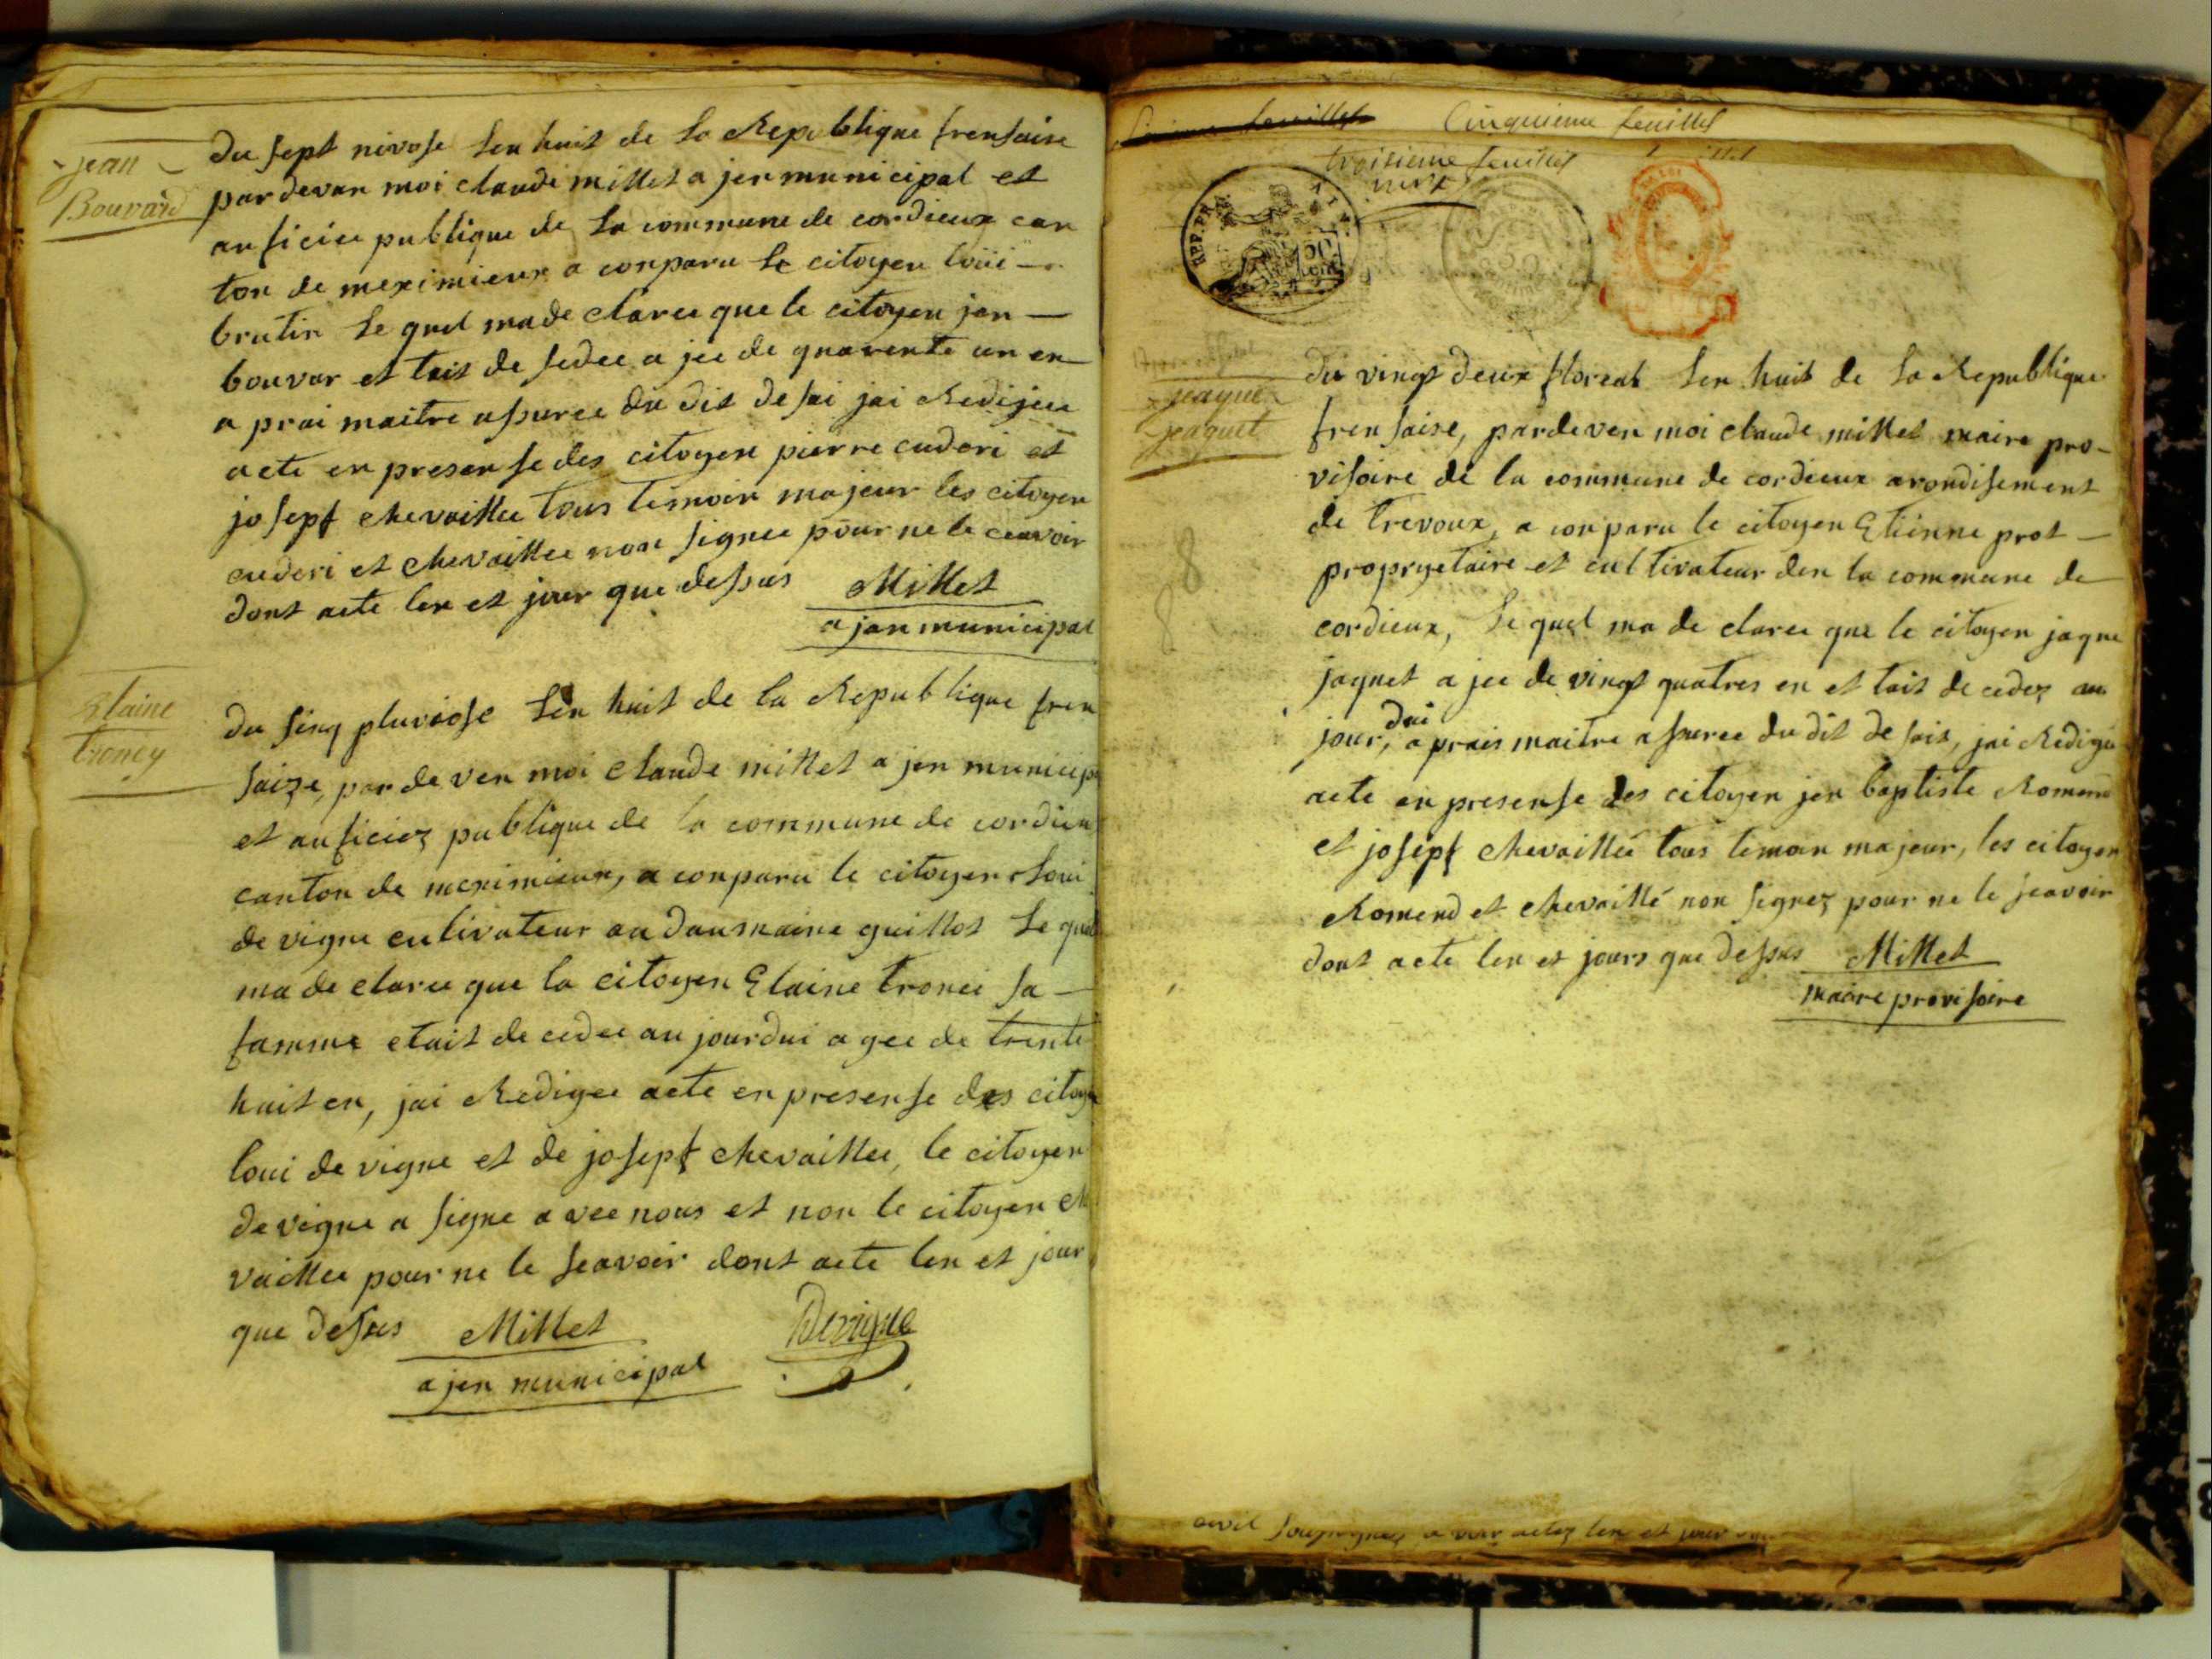 jean
Bouvard
du sept nivose len huit de la Republique frensaise
pardevan moi claude millet a jen municipal et
auficiee publique de la commune de cordieux can
ton de meximieux a conparu le citoyen loui
brutin le quel made claree que le citoyen jan
bouvar et tait de sedee a jee de quarente un en
a prai maitre assuree du dit desai jai Redijee
acte en presense des citoyen pierre cuderi et
josepf chevaillee tous temoin majeur les citoyen
cuderi et chevaillee non signee pour ne le ceavoir
dont acte len et jour que dessus Millet
a jan municipal
Elaine
troncy
du sinq pluviose len huit de la Republique fren
saize, par de ven moi claude millet a jen municip
et auficiez publique de la commune de cordieu
canton de meximieux, a conparu le citoyen Loui
de vigne cultivateur au daumaine guillot le quel
ma de claree que la citoyen Elaine tronci sa
famme etait de cedee au jourdui a gee de trente
huit en, jai Redigee acte en presense des citoye
loui de vigne et de josepf chevaillee, le citoyen
devigne a signe a vec nous et non le citoyen che
vaillee pour ne le seavoir dont acte len et jour
que desus Millet Devigne
a jen municipal
feuillet Cinquieme feuillet
troisieme feuillet
REP. FR.
jaque
jaquet
8
8
du vingt deux floreal len huit de la Republique
frensaise, pardeven moi claude millet maire pro-
visoire de la commune de cordieux arondisement
de trevoux, a conparu le citoyen Etienne prot
propryetaire et cultivateur den la commune de
cordieux, le quel ma de claree que le citoyen jaque
jaquet a jee de vingt quatres en et tait de cedez au
jour, dui a prais maitre assuree du dit desais, jai Redigee
acte en presense des citoyen jen baptiste Romend
et josepf chevaillé tous temoin majeur, les citoyen
Romend et chevaillé non signez pour ne le seavoir
dont acte len et jours que dessus Millet
maire provisoire
len et jour